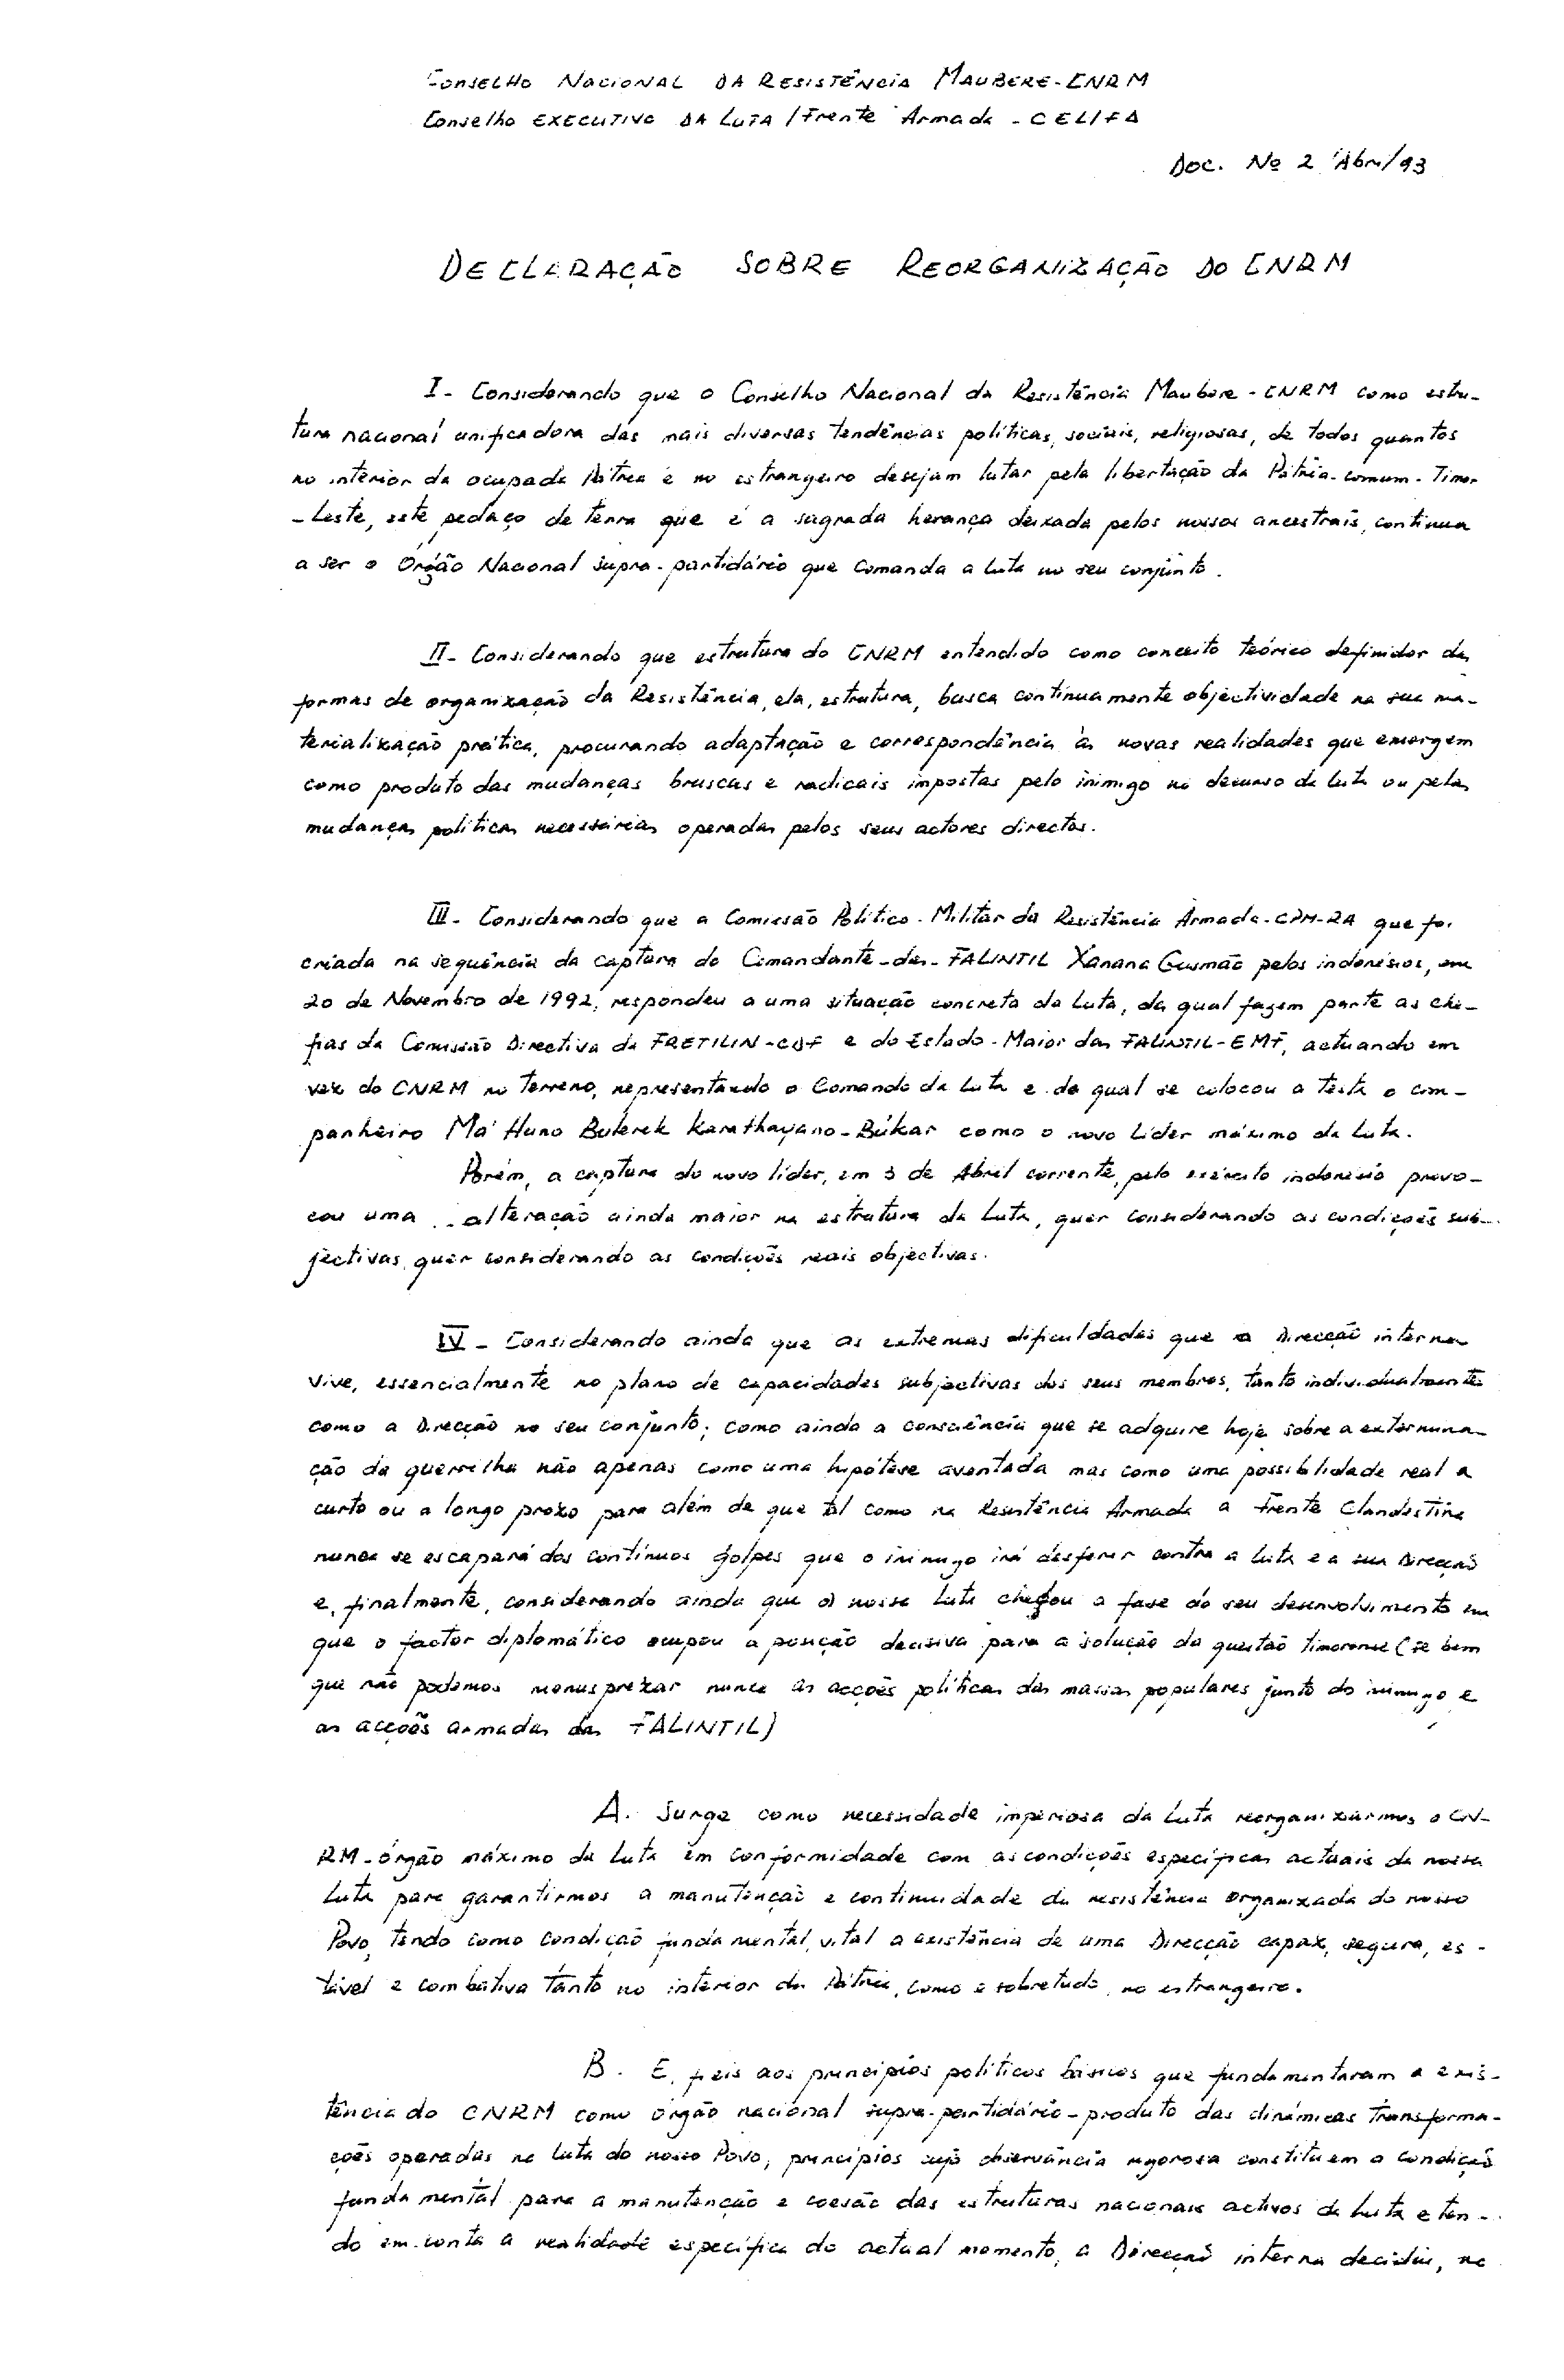 Conselho Nacional da Resistência Maubere-CNRM
Conselho Executivo da Luta/Frente Armada - CELIFA
Doc. Nº 2 Abril/93
DECLARAÇÃO SOBRE REORGANIZAÇÃO DO CNRM
I- Considerando que o Conselho Nacional da Resistência Maubere-CNRM como estru-
tura nacional unificadora das mais diversas tendências políticas, sociais, religiosas, de todos quantos
no interior da ocupada Pátria e no estrangeiro desejam lutar pela libertação da Pátria-comum-Timor-
-Leste, este pedaço de terra que é a sagrada herança deixada pelos nossos ancestrais, continua
a ser o Órgão Nacional supra-partidário que comanda a luta no seu conjunto.
II- Considerando que estrutura do CNRM entendido como conceito teórico definidor das
formas de organização da Resistência, ela, estrutura, busca continuamente objectividade na sua ma-
terialização prática, procurando adaptação e correspondência às novas realidades que emergem
como produto das mudanças bruscas e radicais impostas pelo inimigo no decurso da luta ou pelas
mudanças políticas necessárias operadas pelos seus actores directos.
III- Considerando que a Comissão Político-Militar da Resistência Armada-CPM-RA que foi
criada na sequência da captura do Comandante-das-FALINTIL Xanana Gusmão pelos indonésios, em
20 de Novembro de 1992, respondeu a uma situação concreta da Luta, da qual fazem parte as che-
fias da Comissão Directiva da FRETILIN-CDF e do Estado-Maior das FALINTIL-EMF, actuando em
vez do CNRM no terreno, representando o Comando da Luta e da qual se colocou a testa o com-
panheiro Má Huno Bulerek Karathayano-Búkar como o novo líder máximo da Luta.
Porém, a captura do novo líder, em 3 de Abril corrente, pelo exército indonésio provo-
cou uma alteração ainda maior na estrutura da Luta, quer considerando as condições sub-
jectivas, quer considerando as condições reais objectivas.
IV- Considerando ainda que as extremas dificuldades que a Direcção interna
vive, essencialmente no plano de capacidades subjectivas dos seus membros, tanto individualmente
como a Direcção no seu conjunto; como ainda a consciência que se adquire hoje sobre a extermina-
ção da guerrilha não apenas como uma hipótese aventada mas como uma possibilidade real a
curto ou a longo prazo para além de que tal como na Resistência Armada a Frente Clandestina
nunca se escapará dos contínuos golpes que o inimigo irá desferir contra a luta e a sua Direcção
e, finalmente, considerando ainda que a nossa Luta chegou a fase do seu desenvolvimento em
que o factor diplomático ocupou a posição decisiva para a solução da questão timorense (se bem
que não podemos menosprezar nunca as acções políticas das massas populares junto do inimigo e
as acções armadas das FALINTIL)
A. Surge como necessidade imperiosa da Luta reorganizarmos o CN-
RM-órgão máximo da Luta em conformidade com as condições específicas actuais da nossa
Luta para garantirmos a manutenção e continuidade da resistência organizada do nosso
Povo, tendo como condição fundamental, vital a existência de uma Direcção capaz, segura, es-
tável e combativa tanto no interior da Pátria, como e sobretudo, no estrangeiro.
B. E, fieis aos princípios políticos básicos que fundamentaram a exis-
tência do CNRM como órgão nacional supra-partidário-produto das dinâmicas transforma-
ções operadas na luta do nosso Povo, princípios cuja observância rigorosa constituem a condição
fundamental para a manutenção e coesão das estruturas nacionais activos da Luta e ten-
do em conta a realidade específica do actual momento, a Direcção interna decidiu, na